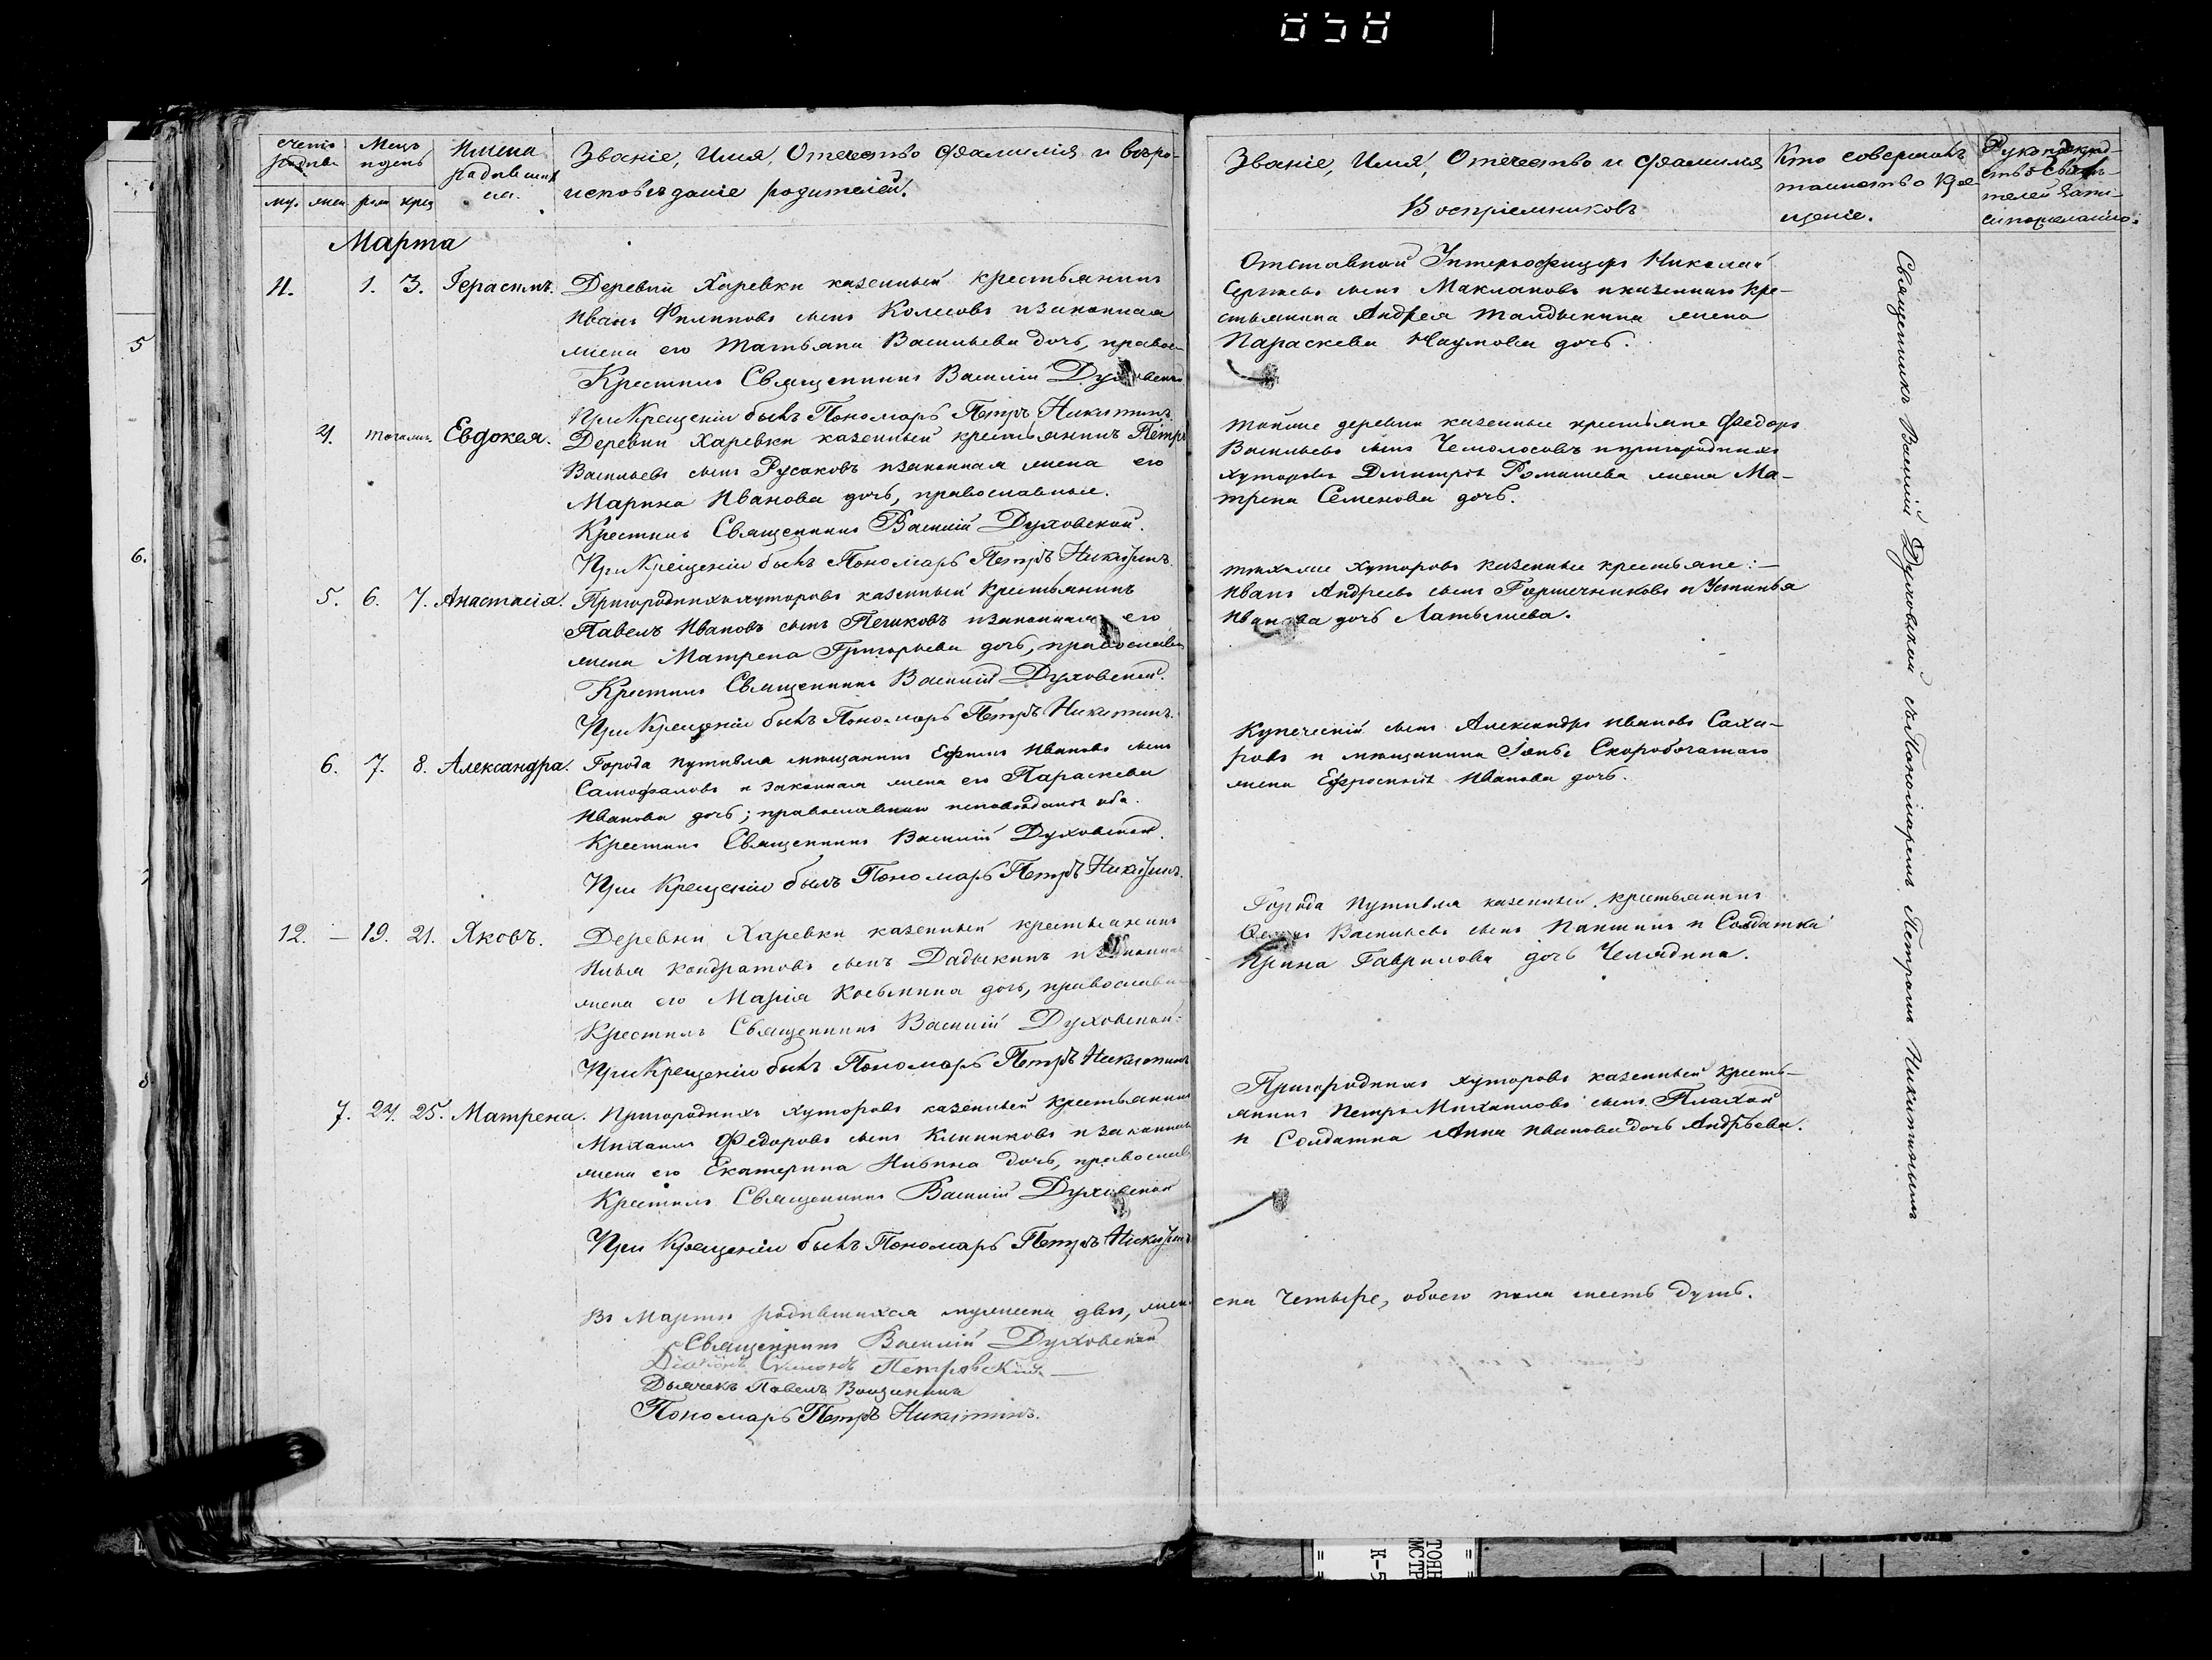 счетъ родив.
Мѣсяцъ и день
Имена родившихся.
Званіе, Имя, Отечество фамилія и вѣро-
исповѣданіе родителей.
му. жен. рож крещ
Марта
11. 1. 3. Герасимъ.
Деревни Харевки казенный крестьянинъ
Иванъ Филиповъ сынъ Колесовъ и законная
жена его Татьяна Васильева дочь, правос
Крестилъ Священникъ Василій Духовской
При Крещеніи былъ Пономарь Петръ Никитинъ
4. тогожъ. Евдокея.
Деревни Харевки казенный крестьянинъ Петръ
Васильевъ сынъ Русаковъ и законная жена его
Марина Иванова дочь, православные.
Крестилъ Священникъ Василій Духовской.
При Крещеніи былъ Пономарь Петръ Никитинъ.
5. 6. 7. Анастасія.
Пригородныхъ хуторовъ казенный крестьянинъ
Павелъ Ивановъ сынъ Пешковъ и законная его
жена Матрена Григорьева дочь, православн
Крестилъ Священникъ Василій Духовской.
При Крещеніи былъ Пономарь Петръ Никитинъ.
6. 7. 8. Александра.
Города Путивля мещанинъ Ефимъ Ивановъ сынъ
Самофаловъ и законная жена его Параскева
Иванова дочь; православнаго исповѣданія оба.
Крестилъ Священникъ Василій Духовской.
При Крещеніи былъ Пономарь Петръ Никитинъ.
12. — 19. 21. Яковъ.
Деревни Харевки казенный крестьянинъ
Илья Кондратовъ сынъ Дадыкинъ и законная
жена его Марія Козьмина дочь, православн
Крестилъ Священникъ Василій Духовской.
При Крещеніи былъ Пономарь Петръ Никитинъ
7. 24. 25. Матрена.
Пригородныхъ хуторовъ казенный крестьянинъ
Михаилъ Федоровъ сынъ Клиниковъ и законная
жена его Екатерина дочь, православ
Крестилъ Священникъ Василій Духовской
При Крещеніи былъ Пономарь Петръ Никитинъ
Въ Мартѣ родившихся мужеска два, жен
Священникъ Василій Духовской
Діаконъ Симонъ Петровскій
Дьячекъ Павелъ
Пономарь Петръ Никитинъ.
Званіе, Имя, Отечество и фамилія
Воспріемниковъ
Кто совершалъ
таинство Кре-
щеніе.
Рукоприклад-
ство свидѣ-
телей записи
по желанію.
Отставной Унтерофицеръ Николай
Сергѣевъ сынъ Маклаковъ и казеннаго кре-
стьянина Андрея Талдыкина жена
Параскева Наумова дочь.
Тойже деревни казенные крестьяне Федоръ
Васильевъ сынъ Чемолосовъ и пригородныхъ
хуторовъ Дмитрія Ромашева жена Ма-
трена Семенова дочь.
техже хуторовъ казенные крестьяне:—
Иванъ Андреевъ сынъ Горшечниковъ и Устинья
Иванова дочь Латышева.
Купеческій сынъ Александръ Ивановъ Саха-
ровъ и мещанина Скоробогатаго
жена Ефросинія Иванова дочь.
Города Путивля казенный крестьянинъ
Васильевъ сынъ Паншинъ и Солдатка
Ирина Гаврилова дочь Челядина.
Пригородныхъ хуторовъ казенный кресть-
янинъ Петръ Михаиловъ сынъ Плахой
и Солдатка Анна Иванова дочь Андрѣева.
ска четыре, обоего пола шесть душъ.
Священникъ Василій Духовской съ Пономаремъ Петромъ Никитинымъ
5
6.
8